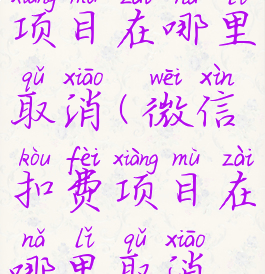 xiàng mù zài nǎ lǐ
项目在哪里
qǔ xiāo wēi xìn
取消(微信
kòu fèi xiàng mù zài
扣费项目在
nǎ lǐ qǔ xiāo
哪里取消